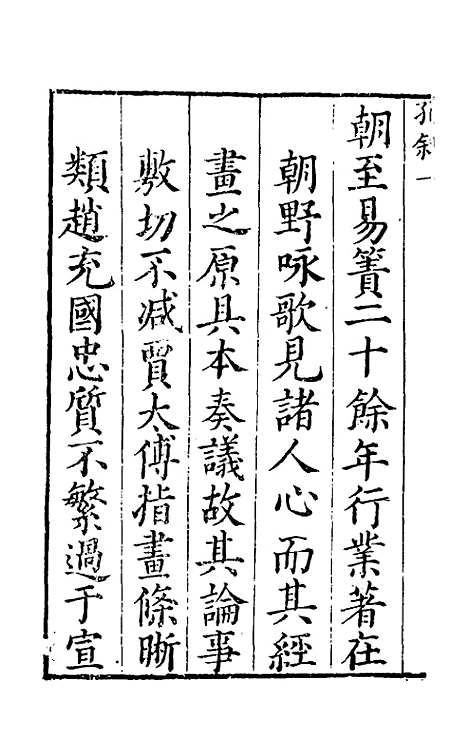 孔敘一
朝至易簀二十餘年行業著在
朝野咏歌見諸人心而其經
畫之原具本奏議故其論事
敷切不减賈太傅指畫條晰
類趙充國忠質不繁過于宣